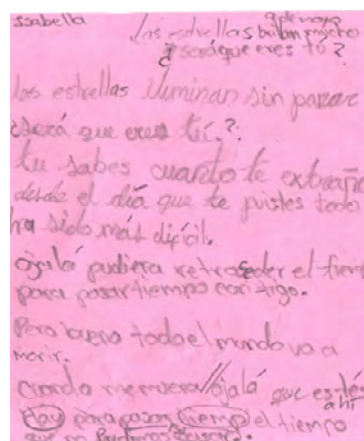 Issabella
9 de mayo
Las estrellas brillan mucho
¿será que eres tú?
los estrellas iluminan sin parar
¿será que eres tú.?
tu sabes cuanto te extraño
desde el día que te fuistes todo
ha sido más difícil.
ojalá pudiera retroseder el
para pasar tiempo contigo.
Pero bueno todo el mundo va a
morir.
cuando me muera // ojalá que estés
ahí
para pasar tiempo el tiempo
que no